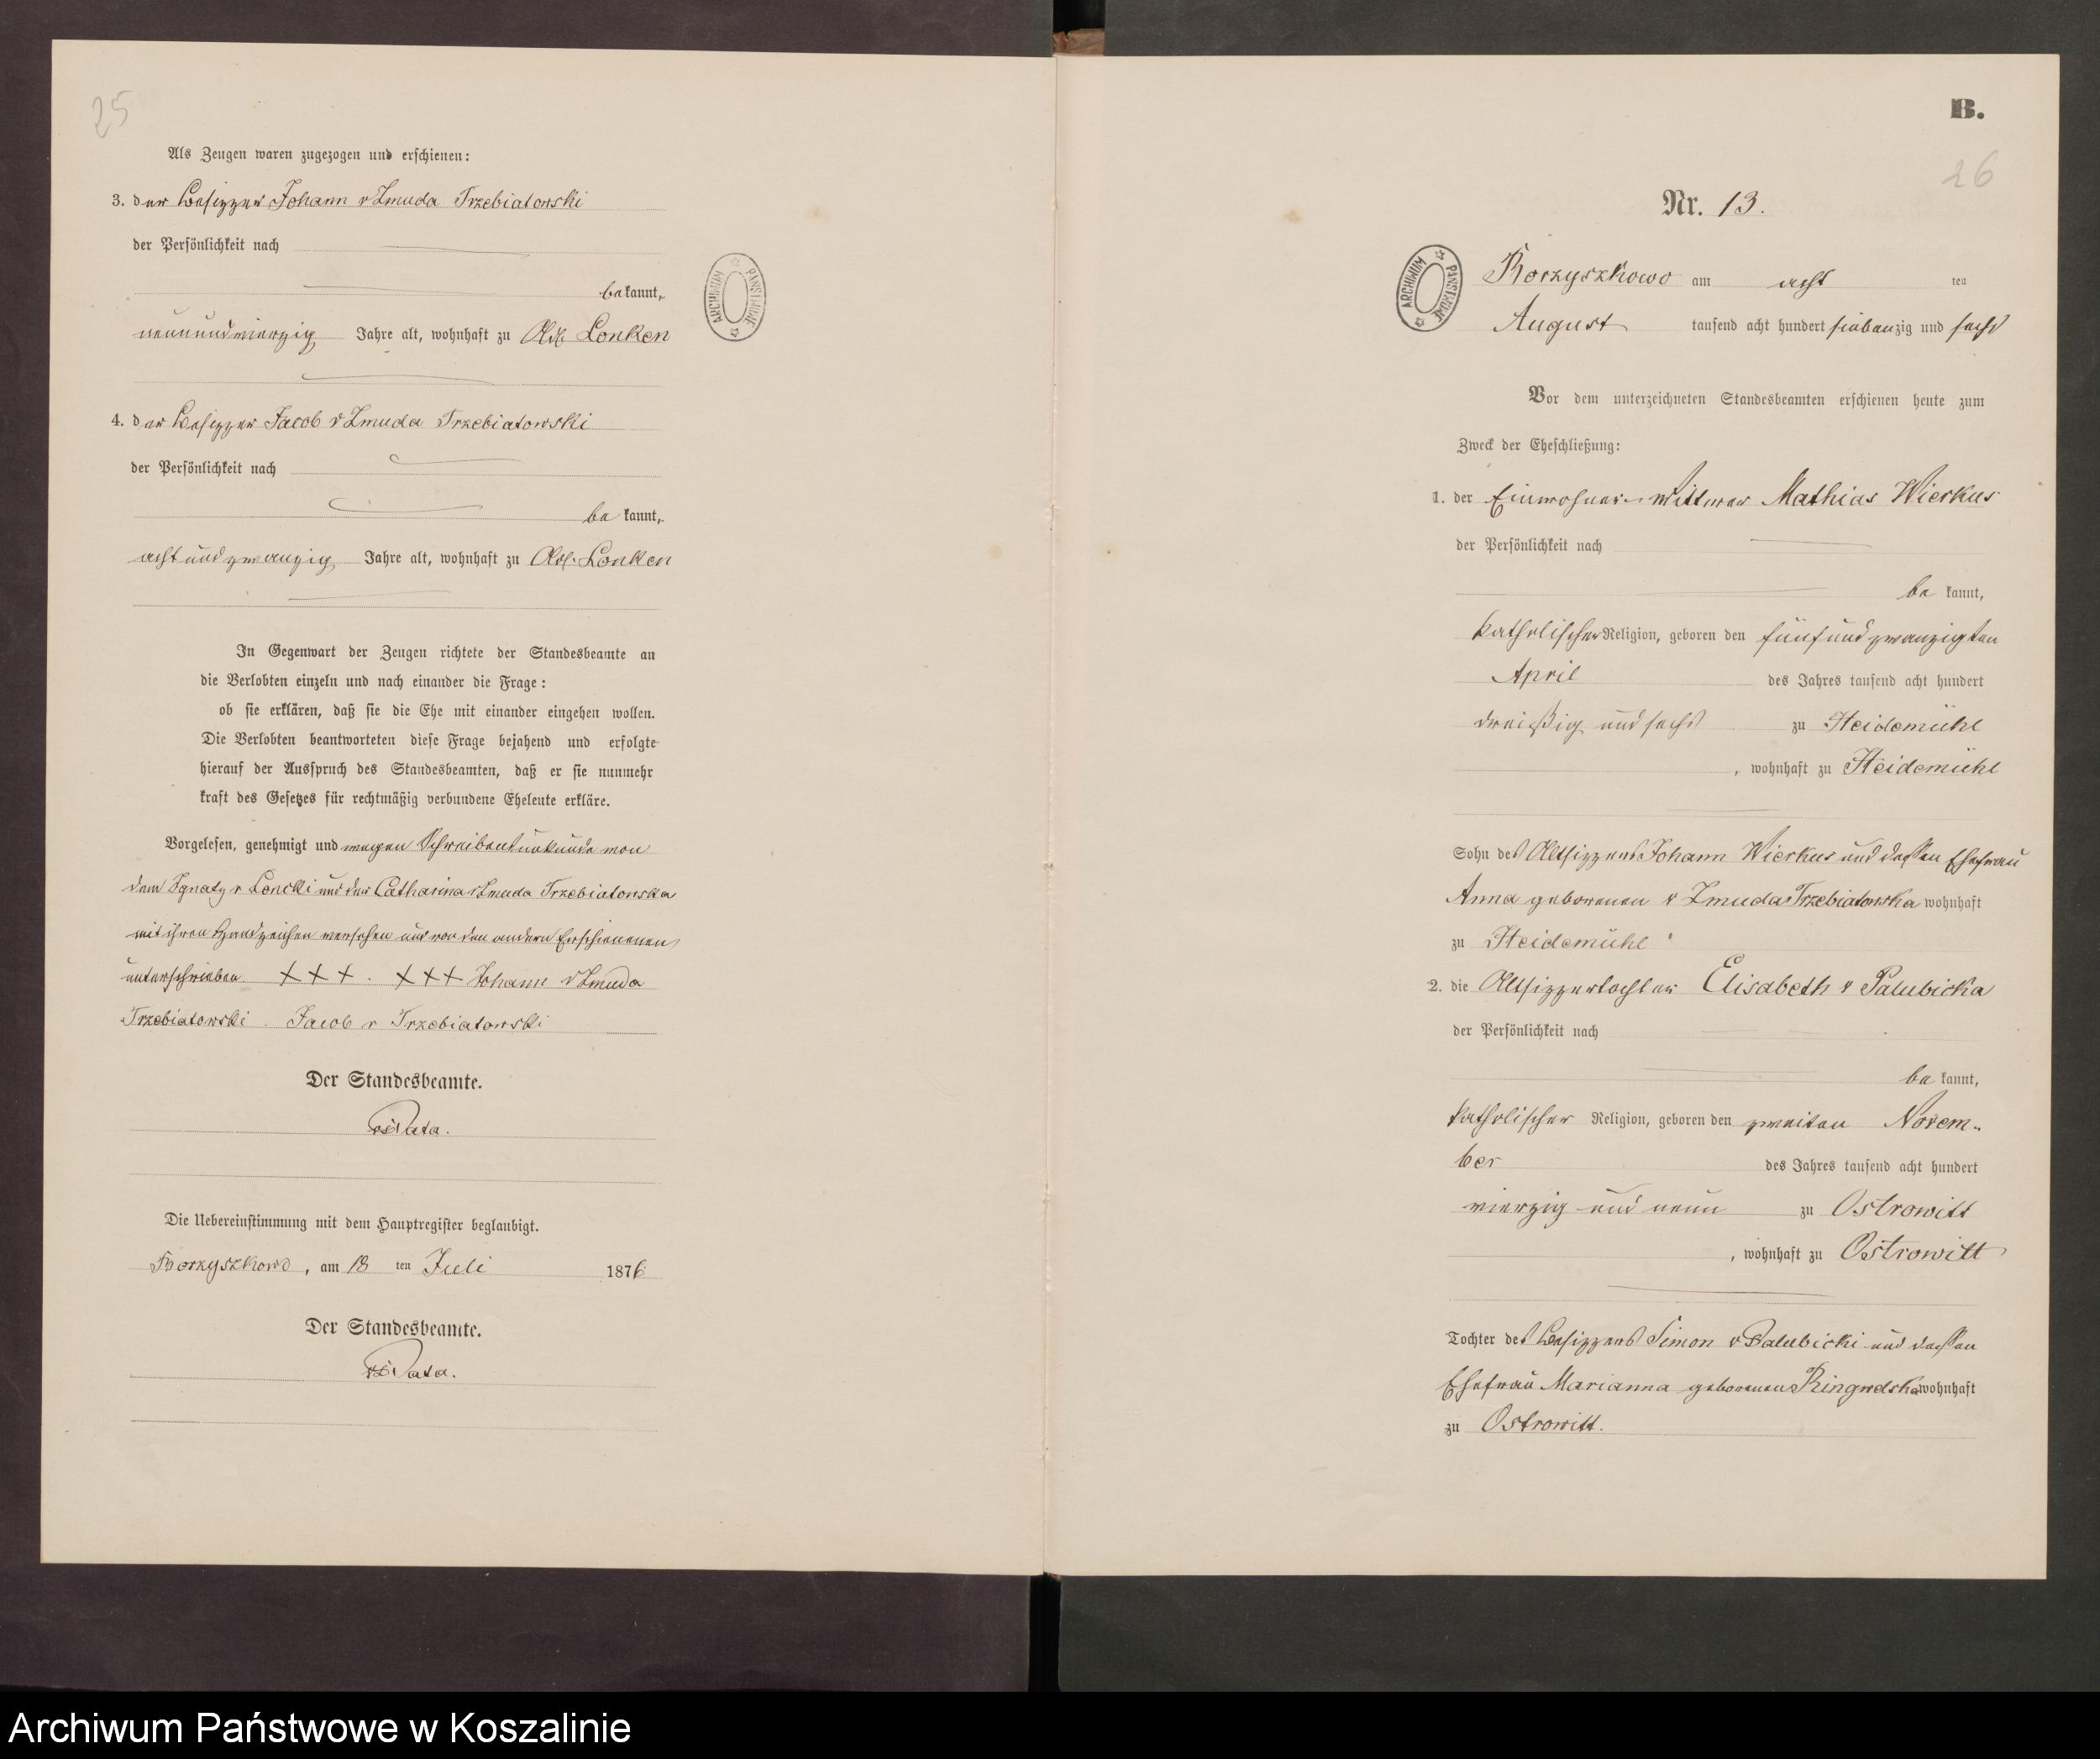 25
Als Zeugen waren zugezogen und erschienen:
3. der Besitzer Johann v Zmuda Trzebiatowski
der Persönlichkeit nach
bekannt,
neunundvierzig Jahre alt, wohnhaft zu Adl. Lonken
4. der Besitzer Jacob v Zmuda Trzebiatowski
der Persönlichkeit nach
be kannt,
achtundzwanzig Jahre alt, wohnhaft zu Adl. Lonken
In Gegenwart der Zeugen richtete der Standesbeamte an
die Verlobten einzeln und nach einander die Frage:
ob sie erklären, daß sie die Ehe mit einander eingehen wollen.
Die Verlobten beantworteten diese Frage bejahend und erfolgte
hierauf der Ausspruch des Standesbeamten, daß er sie nunmehr
kraft des Gesetzes für rechtmäßig verbundene Eheleute erkläre.
Vorgelesen, genehmigt und wegen Schreibensunkunde von
dem Ignatz v Loncki und der Catharina v Zmuda Trzebiatowska
mit ihren Handzeichen versehen und von den andern Erschienenen
unterschrieben. +++. +++ Johann v Zmuda
Trzebiatowski. Jacob v Trzebiatowski
Der Standesbeamte.
Die Uebereinstimmung mit dem Hauptregister beglaubigt.
Borzyszkowo, am 18 ten Juli 1876
Der Standesbeamte.
ARCHIWUM PAŃSTWOWE
B.
26
Nr. 13.
ARCHIWUM PAŃSTWOWE
Borzyszkowo am acht ten
August tausend acht hundert siebenzig und sechs
Vor dem unterzeichneten Standesbeamten erschienen heute zum
Zweck der Eheschließung:
1. der Einwohner-Wittwer Mathias Wierkus
der Persönlichkeit nach
be kannt,
katholischer Religion, geboren den fünfundzwanzigten
April des Jahres tausend acht hundert
dreißig und sechs zu Heidemühl
, wohnhaft zu Heidemühl
Sohn des Altsitzers Johann Wierkus und dessen Ehefrau
Anna geborenen v Zmuda Trzebiatowska wohnhaft
zu Heidemühl
2. die Altsitzertochter Elisabeth v Palubicka
der Persönlichkeit nach
be kannt,
katholischer Religion, geboren den zweiten Novem-
ber des Jahres tausend acht hundert
vierzig und neun zu Ostrowitt
, wohnhaft zu Ostrowitt
Tochter des Besitzers Simon v Palubicki und dessen
Ehefrau Marianna geborenen wohnhaft
zu Ostrowitt.
Archiwum Państwowe w Koszalinie